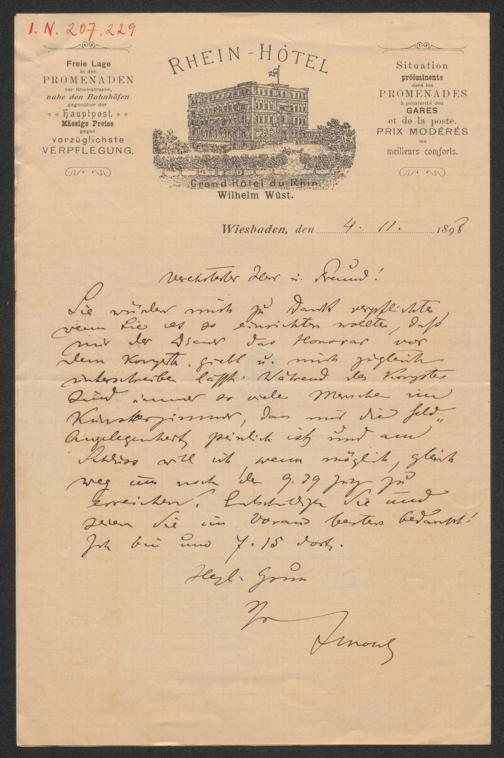 I. N. 207.229
Freie Lage
in den
PROMENADEN
der Rheinstrasse,
nahe den Bahnhöfen
gegenüber der
Hauptpost.
Mässige Preise
gegen
vorzüglichste
VERPFLEGUNG.
RHEIN-HÔTEL
Grand Hôtel du Rhin.
Wilhelm Wüst.
Situation
prééminente
dans les
PROMENADES
à proximité des
GARES
et de la poste.
PRIX MODÉRÉS
les
meilleurs comforts.
Wiesbaden, den 4. 11. 1898
Verehrtester Herr u. Freund!
Sie würden mich zu Dank verpflichten
wenn Sie es so einrichten wollten, daß
mir der Diener das Honorar vor
dem Konzerte giebt u. mich zugleich
unterschreiben läßt. Während des Konzertes
sind immer so viele Menschen im
Künstlerzimmer, das mir die Geld-
Angelegenheit peinlich ist und am
Schluss will ich wenn möglich, gleich
weg um noch den 9.39 Zug zu
erreichen. Entschuldigen Sie und
seien Sie im Voraus bestens bedankt!
Ich bin um 7.15 dort.
Herzl. Gruss
Ihr